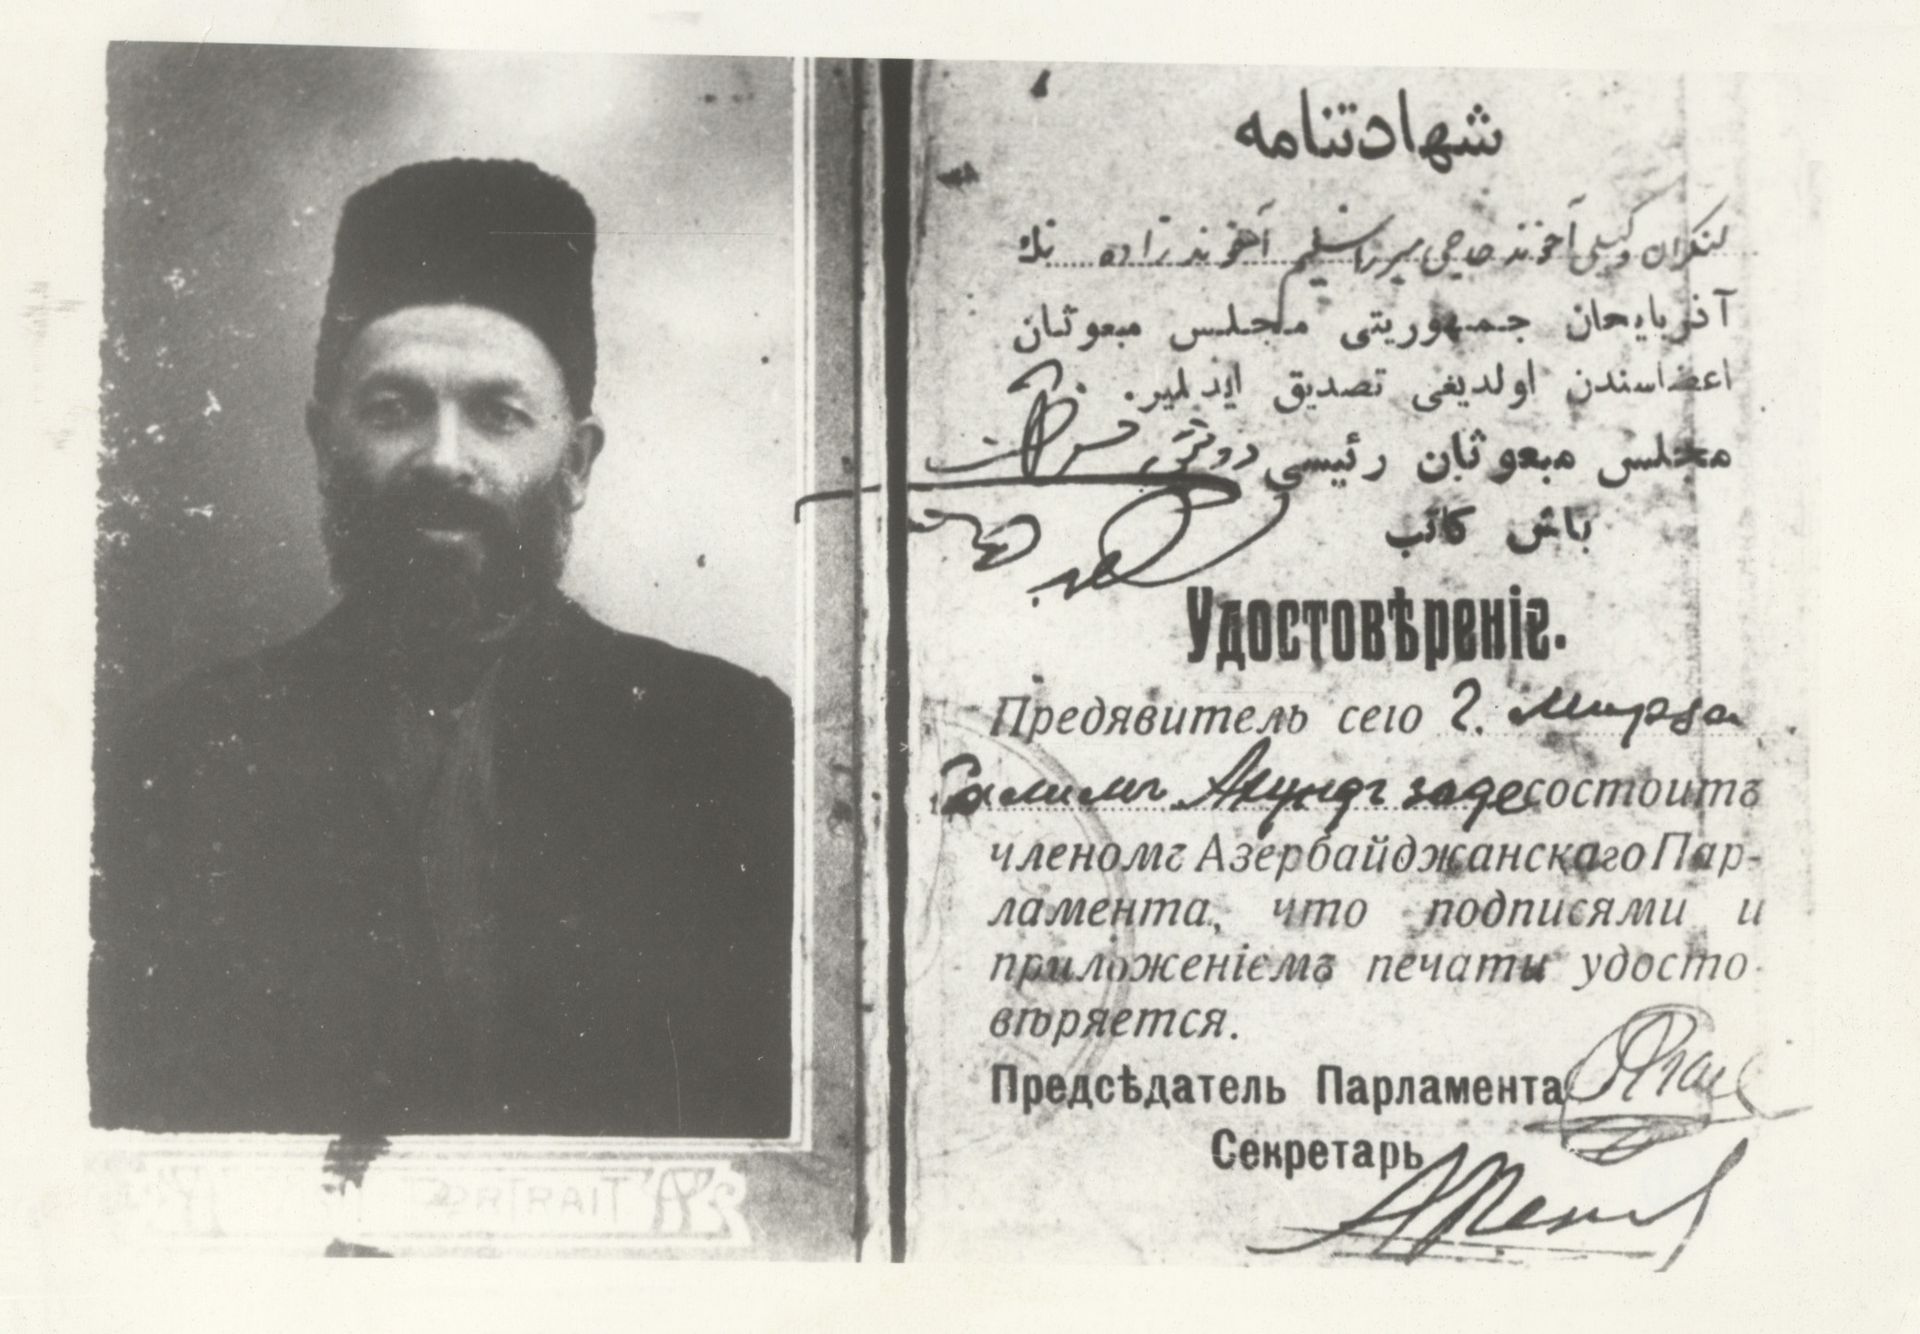 شهادتنامه
لنکران وکیلی آخوند حاجی میرزا سلیم آخوند زاده نك
آذربایجان جمهوریتی مجلس مبعوثان
اعضاسندن اولدیغی تصدیق ایدیلیر.
مجلس مبعوثان رئیسی دوقتور
باش کاتب
Удостовѣреніе.
Предявитель сего г. Мирза
Салимъ Ахундъ заде состоитъ
членомъ Азербайджанскаго Пар-
ламента, что подписями и
приложеніемъ печати удосто-
вѣряется.
Предсѣдатель Парламента
Секретарь